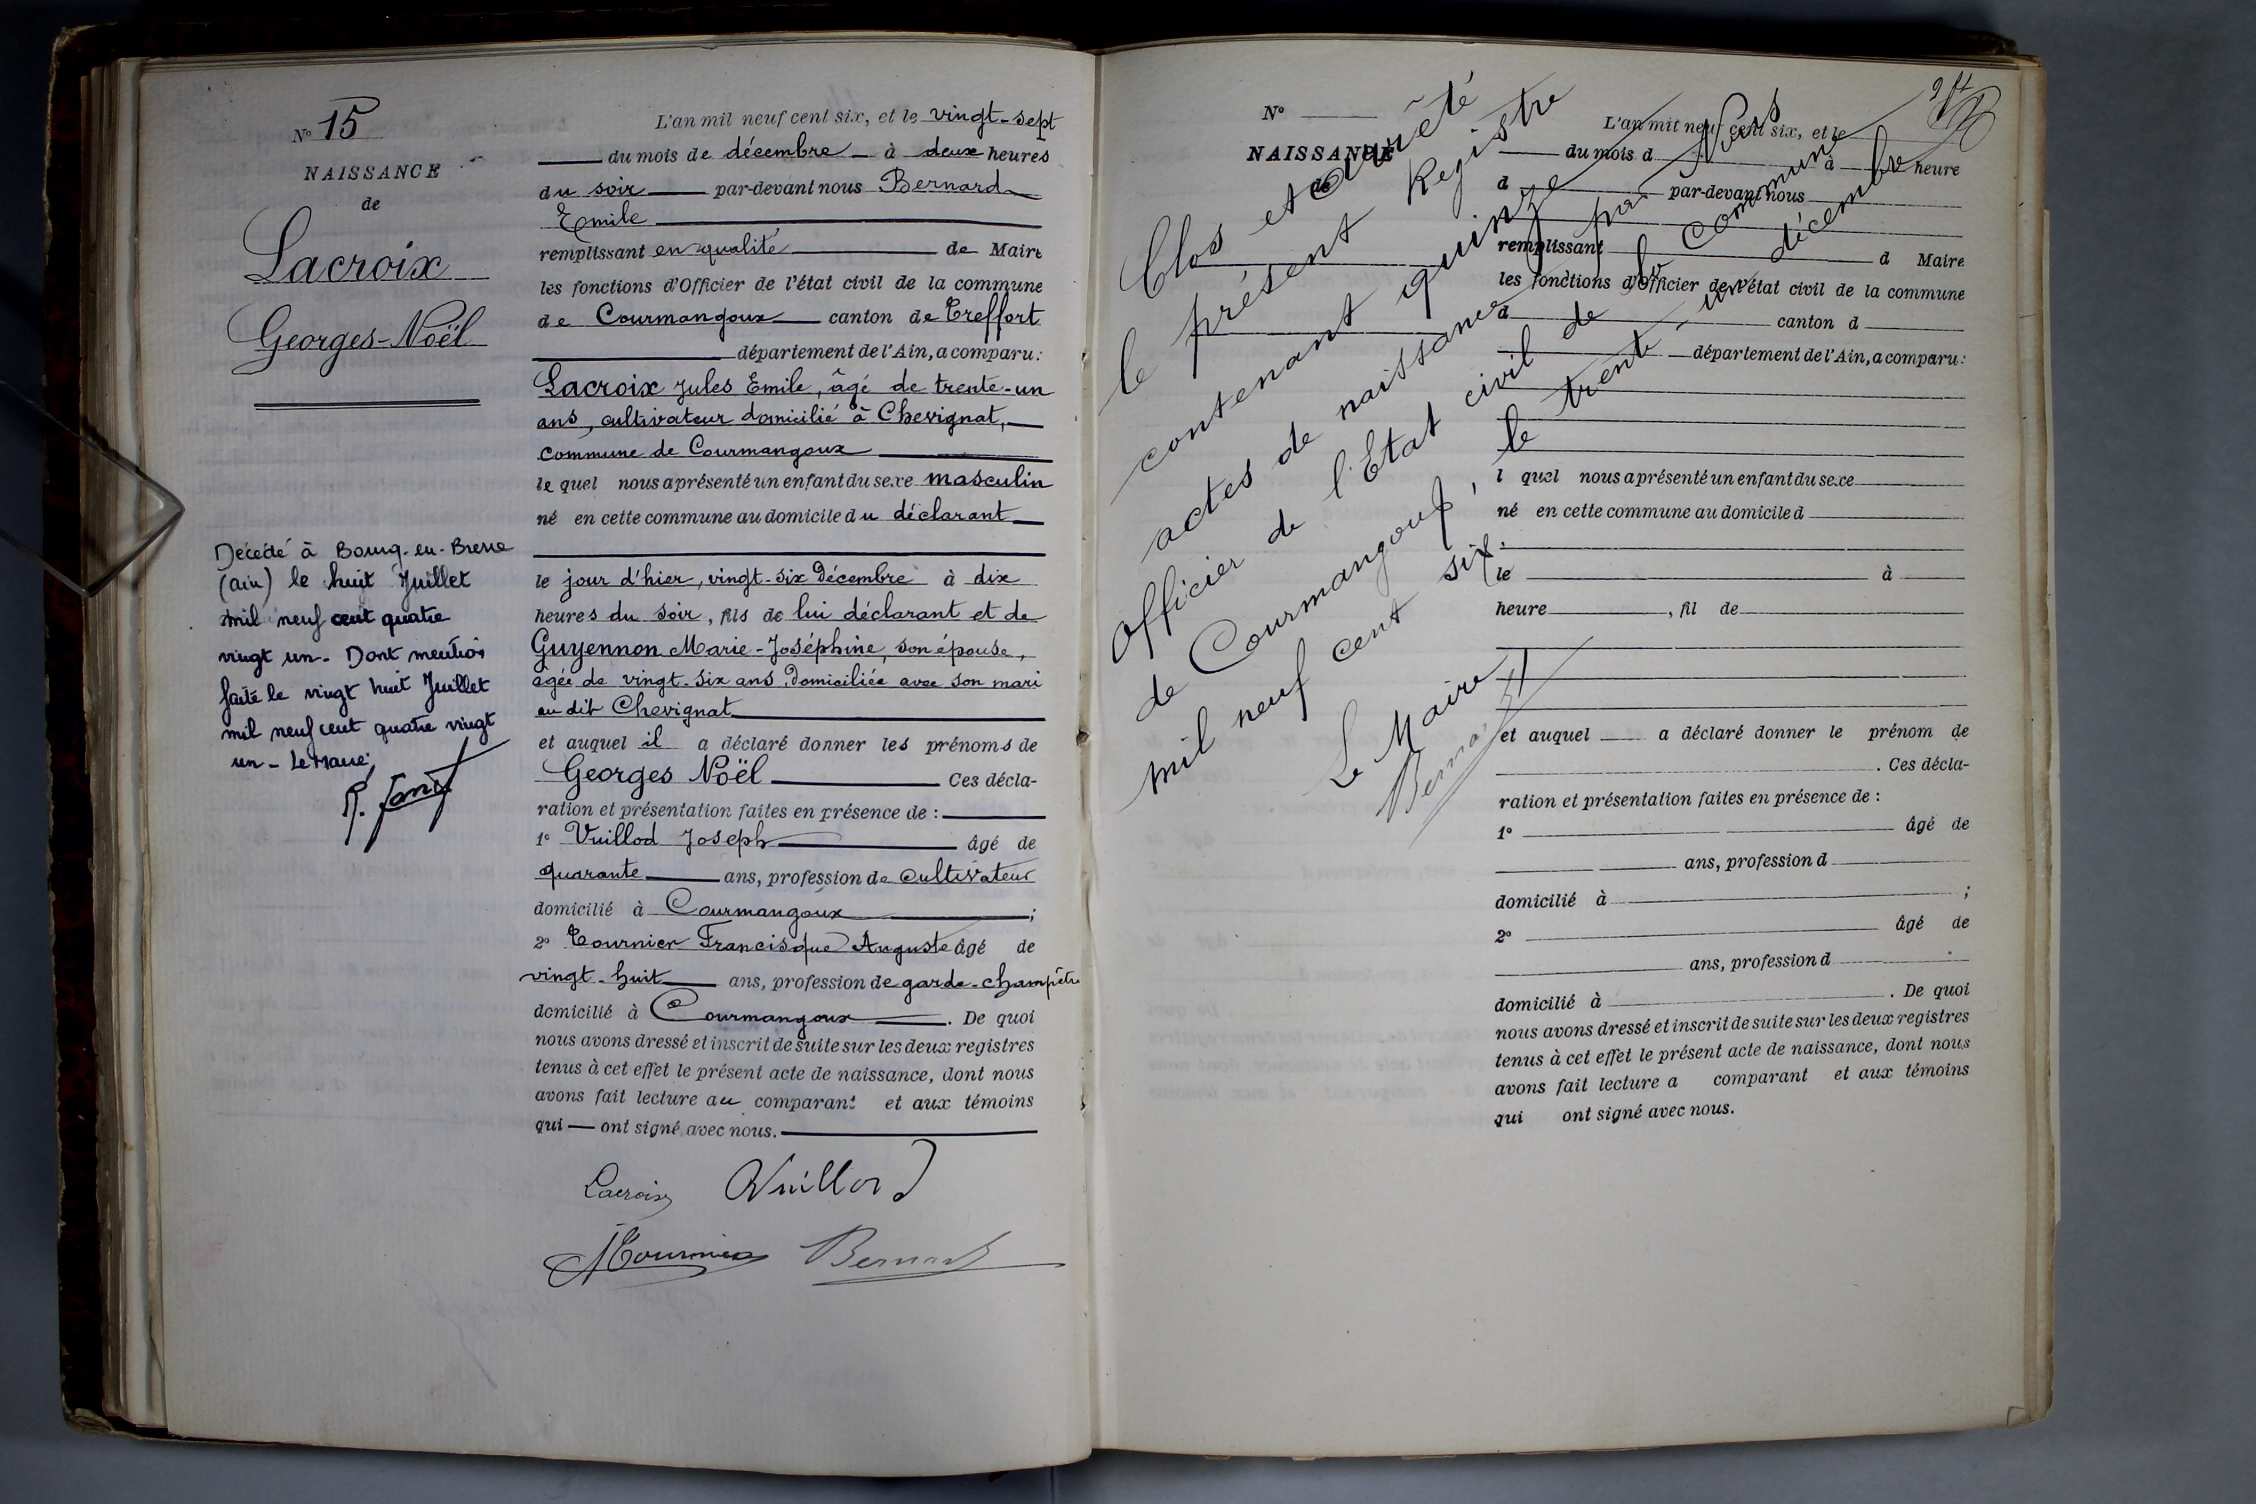 N° 15
NAISSANCE
de
Lacroix
Georges-Noël
Décédé à Bourg-en-Bresse
(ain) le huit Juillet
mil neuf cent quatre
vingt un - Dont mention
faite le vingt huit Juillet
mil neuf cent quatre vingt
un - Le Maire,
L'an mil neuf cent six, et le vingt-sept
du mois de décembre à deux heures
du soir par-devant nous Bernard
Emile
remplissant en qualité de Maire
les fonctions d'Officier de l'état civil de la commune
de Courmangoux canton de Treffort
département de l'Ain, a comparu:
Lacroix Jules Emile, âgé de trente-un
ans, cultivateur domicilié à Chevignat,
commune de Courmangoux
le quel nous a présenté un enfant du sexe masculin
né en cette commune au domicile du déclarant
le jour d'hier, vingt-six Décembre à dix
heures du soir, fils de lui déclarant et de
Guyennon Marie-Joséphine, son épouse,
âgée de vingt-six ans, Domiciliée avec son mari
au dit Chevignat
et auquel il a déclaré donner les prénoms de
Georges Noël Ces décla-
ration et présentation faites en présence de :
1° Vuillod Joseph âgé de
quarante ans, profession de cultivateur
domicilié à Courmangoux ;
2° Tournier Francisque Auguste âgé de
vingt-huit ans, profession de garde-champêtre
domicilié à Courmangoux . De quoi
nous avons dressé et inscrit de suite sur les deux registres
tenus à cet effet le présent acte de naissance, dont nous
avons fait lecture au comparant et aux témoins
qui ont signé avec nous.
Lacroix Vuillod
Tournier Bernard
N°
NAISSANCE
de
Clos et arrêté
le présent Registre
contenant quinze
actes de naissance par Nous
Officier de l'Etat civil de la Commune
de Courmangoux, le trente-un décembre
mil neuf cent six.
Le Maire
Bernard
L'an mil neuf cent six, et le
du mois d à heure
d par-devant nous
remplissant d Maire
les fonctions d'Officier de l'état civil de la commune
d canton d
département de l'Ain, a comparu:
l quel nous a présenté un enfant du sexe
né en cette commune au domicile d
le à
heure , fil de
et auquel a déclaré donner le prénom de
. Ces décla-
ration et présentation faites en présence de :
1° âgé de
ans, profession d
domicilié à ;
2° âgé de
ans, profession d
domicilié à . De quoi
nous avons dressé et inscrit de suite sur les deux registres
tenus à cet effet le présent acte de naissance, dont nous
avons fait lecture a comparant et aux témoins
qui ont signé avec nous.